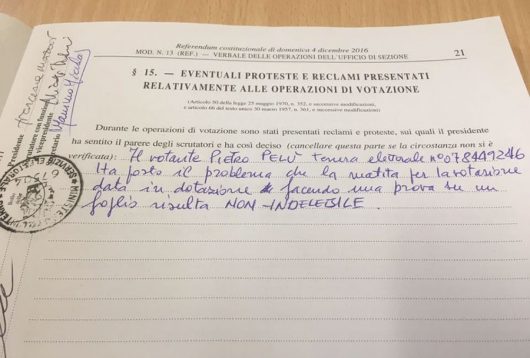 Referendum costituzionale di domenica 4 dicembre 2016
MOD. N. 13 (REF.) — VERBALE DELLE OPERAZIONI DELL'UFFICIO DI SEZIONE
21
§ 15. — EVENTUALI PROTESTE E RECLAMI PRESENTATI
RELATIVAMENTE ALLE OPERAZIONI DI VOTAZIONE
(Articolo 50 della legge 25 maggio 1970, n. 352, e successive modificazioni,
e articolo 66 del testo unico 30 marzo 1957, n. 361, e successive modificazioni)
Durante le operazioni di votazione sono stati presentati reclami e proteste, sui quali il presidente
ha sentito il parere degli scrutatori e ha così deciso (cancellare questa parte se la circostanza non si è
verificata): Il votante PIERO PELÙ tessera elettorale n° 078449246
Ha posto il problema che la matita per la votazione
data in dotazione facendo una prova su un
foglio risulta NON-INDELEBILE.